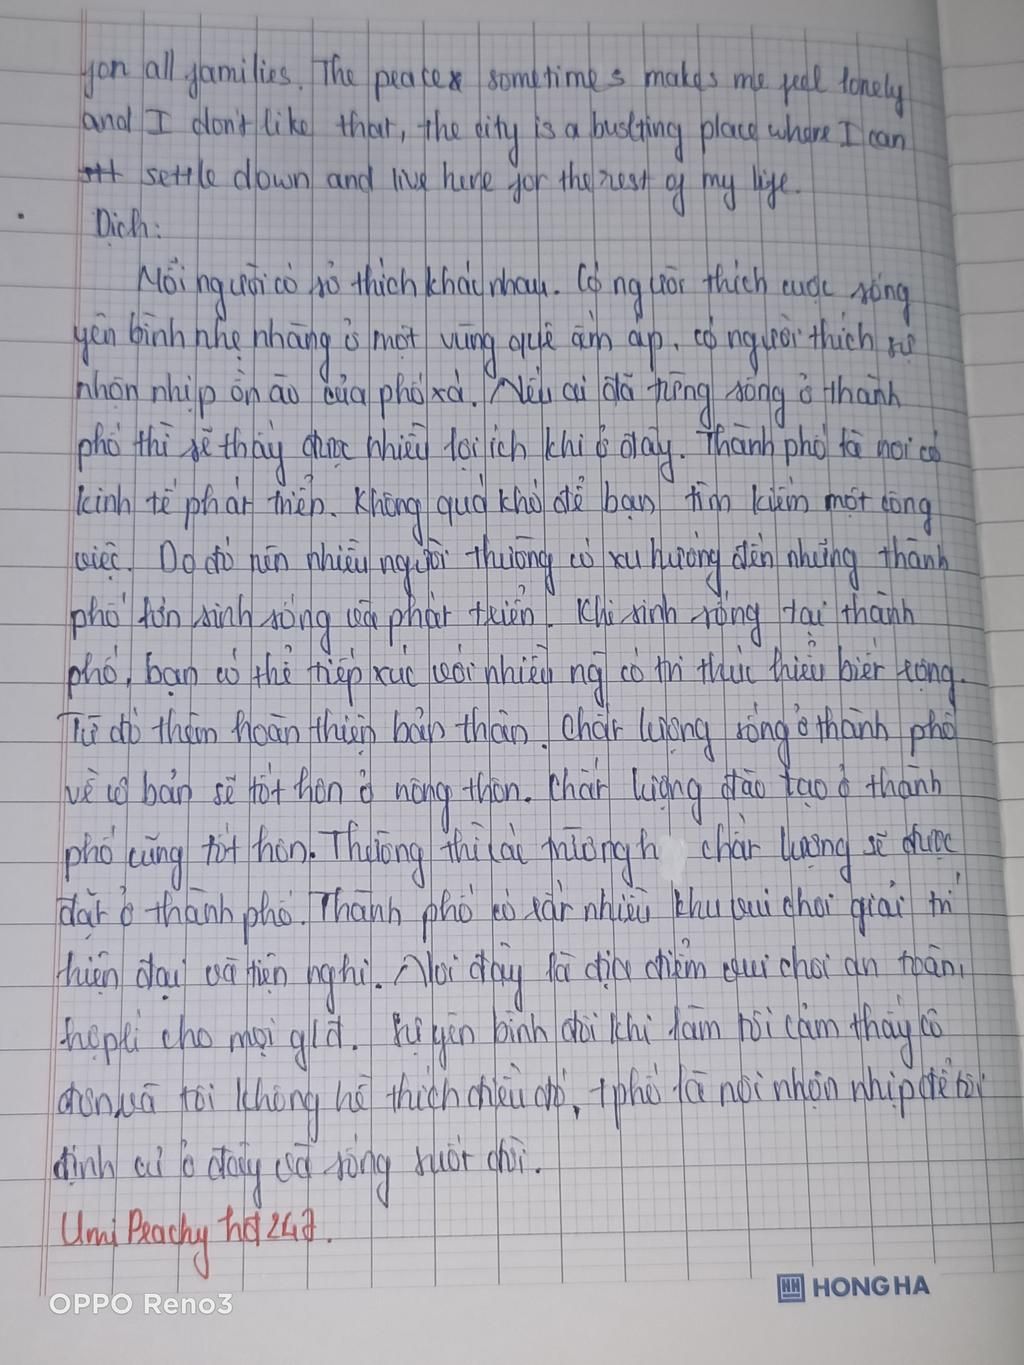 for all families. The peace sometimes makes me feel lonely
and I don't like that, the city is a bustling place where I can
settle down and live here for the rest of my life.
Dịch:
Mỗi người có sở thích khác nhau. Có người thích cuộc sống
yên bình nhẹ nhàng ở một vùng quê ấm áp, có người thích sự
nhộn nhịp ồn ào của phố xá. Nếu ai đã từng sống ở thành
phố thì sẽ thấy được nhiều lợi ích khi ở đây. Thành phố là nơi có
kinh tế phát triển. Không quá khó để bạn tìm kiếm một công
việc. Do đó nên nhiều người thường có xu hướng đến những thành
phố lớn sinh sống và phát triển. Khi sinh sống tại thành
phố, bạn có thể tiếp xúc với nhiều ng có tri thức hiểu biết rộng.
Từ đó thêm hoàn thiện bản thân. Chất lượng sống ở thành phố
về cơ bản sẽ tốt hơn ở nông thôn. Chất lượng đào tạo ở thành
phố cũng tốt hơn. Thường thì các trường h chất lượng sẽ được
đặt ở thành phố. Thành phố có rất nhiều khu vui chơi giải trí
hiện đại và tiện nghi. Nơi đây là địa điểm vui chơi an toàn,
hợp lí cho mọi gđ. Sự yên bình đôi khi làm tôi cảm thấy cô
đơn và tôi không hề thích điều đó, tphố là nơi nhộn nhịp để tôi
định cư ở đây và sống suốt đời.
Umi Peachy hd 247.
HONG HA
OPPO Reno3